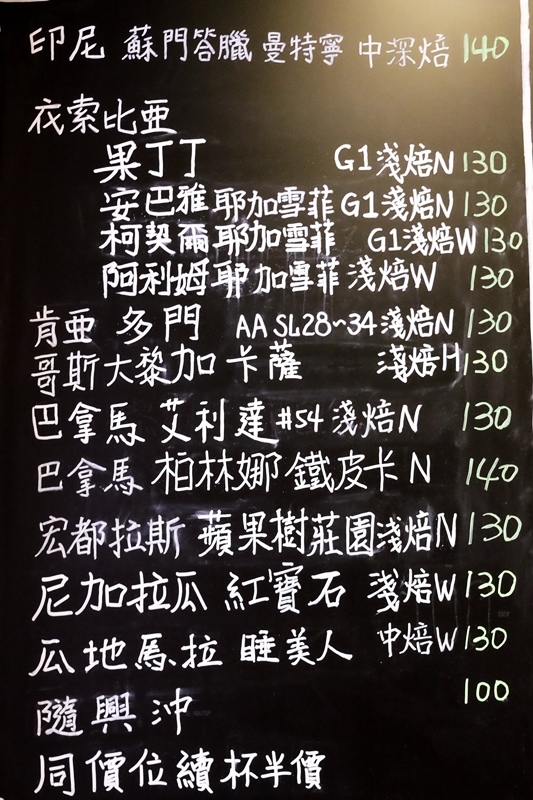 印尼 蘇門答臘 曼特寧 中深焙 140
衣索比亞
果丁丁 G1淺焙N 130
安巴雅 耶加雪菲 G1淺焙N 130
柯契爾 耶加雪菲 G1淺焙W 130
阿利姆 耶加雪菲 淺焙W 130
肯亞 多門 AA SL28~34 淺焙N 130
哥斯大黎加 卡薩 淺焙H 130
巴拿馬 艾利達 #54 淺焙N 130
巴拿馬 柏林娜 鐵皮卡 N 140
宏都拉斯 蘋果樹莊園 淺焙N 130
尼加拉瓜 紅寶石 淺焙W 130
瓜地馬拉 睡美人 中焙W 130
隨興沖 100
同價位續杯半價